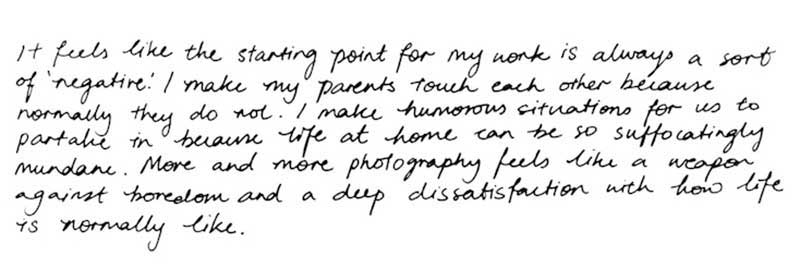 It feels like the starting point for my work is always a sort
of 'negative.' I make my parents touch each other because
normally they do not. I make humorous situations for us to
partake in because life at home can be so suffocatingly
mundane. More and more photography feels like a weapon
against boredom and a deep dissatisfaction with how life
is normally like.